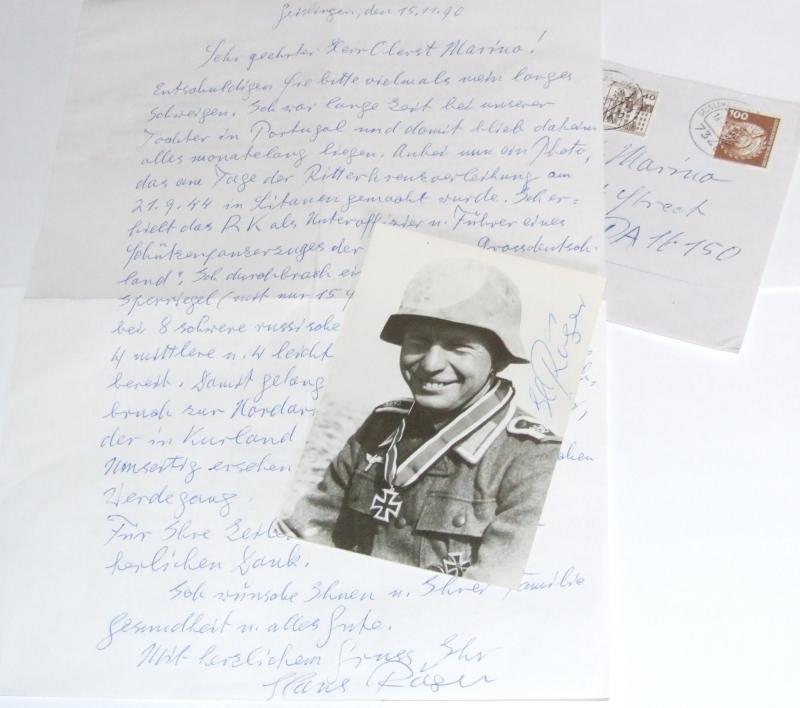 Geislingen, den 15.11.90
Sehr geehrter Herr Oberst Marino!
Entschuldigen Sie bitte vielmals mein langes
Schweigen. Ich war lange Zeit bei unserer
Tochter in Portugal und damit blieb daheim
alles monatelang liegen. Anbei nun ein Photo,
das am Tage der Ritterkreuzverleihung am
21.9.44 in Litauen gemacht wurde. Ich er=
hielt das RK als Unteroffizier u. Führer eines
Schützenpanzerzuges der Grossdeutsch-
land". Ich durchbrach ei
Sperriegel (mit nur 15
bei 8 schwere russische
4 mittlere u. 4 leicht
bereit. Damit gelang
bruch zur Nordar
der in Kurland
Umseitig ersehen
Werdegang.
Für Ihre Zeilen
herzlichen Dank.
Ich wünsche Ihnen u. Ihrer Familie
Gesundheit u. alles Gute.
Mit herzlichem Gruss Ihr
Hans Röger
Röger
40
100
Marino
Street
PA 16150